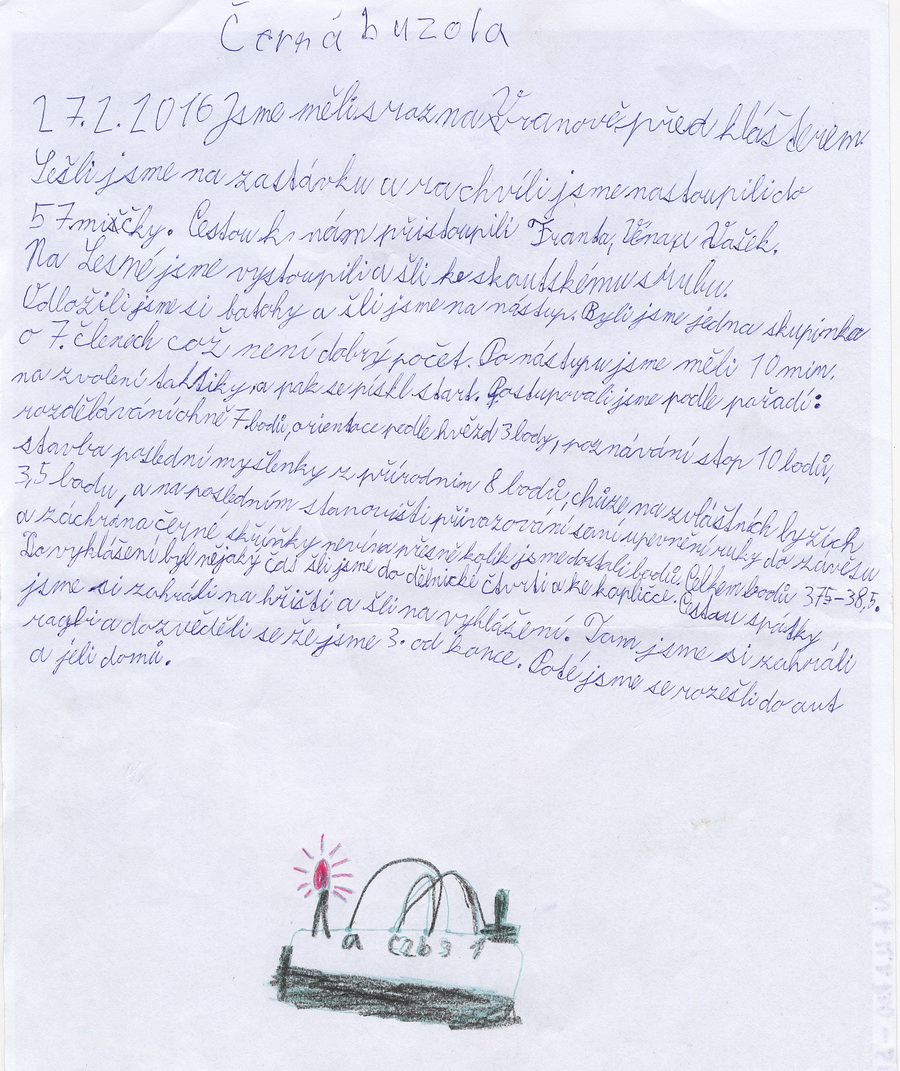 Černá buzola
27.2.2016 Jsme měli sraz na Vranově před klášterem
Sešli jsme na zastávku a za chvíli jsme nastoupili do
57mičky. Cestou k nám přistoupili Franta, Véna a Vašek.
Na Lesné jsme vystoupili a šli ke skautskému srubu.
Odložili jsme si batohy a šli jsme na nástup. Byli jsme jedna skupinka
o 7. členech což není dobrý počet. Po nástupu jsme měli 10 min.
na zvolení taktiky, a pak se pískl start. Postupovali jsme podle pořadí:
rozdělávání ohně 7. bodů, orientace podle hvězd 3 body, poznávání stop 10 bodů,
stavba poslední myšlenky z přírodnin 8 bodů, chůze na zvláštních byžích
3,5 bodu, a na posledním stanovišti přivazování saní upevnění ruky do závěsu
a záchrana černé skříňky nevíme přesně kolik jsme dostali bodů. Celkem bodů 37,5-38,5.
Do vyhlášení byl nějaký čas šli jsme do dělnické čtvrti a ke kapličce. Cestou spátky
jsme si zahráli na hřišti a šli na vyhlášení. Tam jsme si zahráli
ragbi a dozvěděli se že jsme 3. od konce. Poté jsme se rozešli do aut
a jeli domů.
a c2b3 1